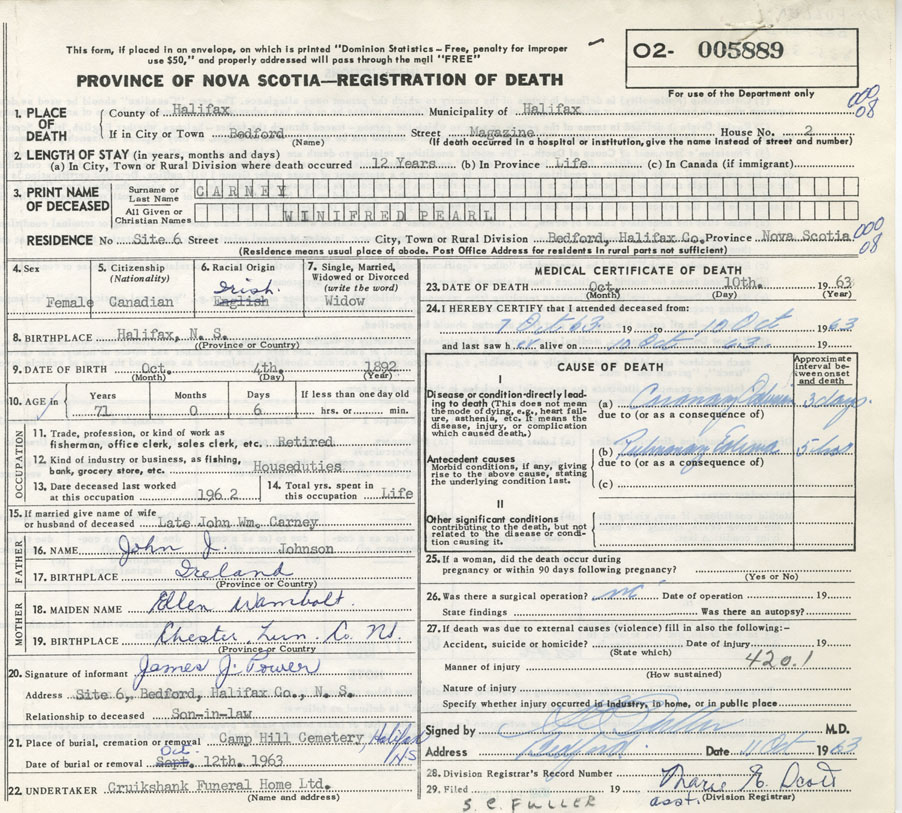 This form, if placed in an envelope, on which is printed "Dominion Statistics – Free, penalty for improper
use $50," and properly addressed will pass through the mail "FREE"
O2- 005889
For use of the Department only
PROVINCE OF NOVA SCOTIA—REGISTRATION OF DEATH
000
08
1. PLACE OF DEATH County of Halifax Municipality of Halifax
If in City or Town Bedford Street Magazine House No. 2
(Name) (If death occurred in a hospital or institution, give name instead of street and number)
2. LENGTH OF STAY (in years, months and days)
(a) In City, Town or Rural Division where death occurred 12 Years (b) In Province Life (c) In Canada (if immigrant)
3. PRINT NAME OF DECEASED
Surname or Last Name CARNEY
All Given or Christian Names WINIFRED PEARL
RESIDENCE No Site 6 Street City, Town or Rural Division Bedford, Halifax Co. Province Nova Scotia 000
08
(Residence means usual place of abode. Post Office Address for residents in rural parts not sufficient)
4. Sex
Female
5. Citizenship
(Nationality)
Canadian
6. Racial Origin
Irish
English
7. Single, Married,
Widowed or Divorced
(write the word)
Widow
8. BIRTHPLACE Halifax, N. S.
(Province or Country)
9. DATE OF BIRTH Oct. 4th. 1892
(Month) (Day) (Year)
10. AGE in Years Months Days If less than one day old
71 0 6 hrs. or min.
OCCUPATION
11. Trade, profession, or kind of work as
fisherman, office clerk, sales clerk, etc. Retired
12. Kind of industry or business, as fishing,
bank, grocery store, etc. Houseduties
13. Date deceased last worked
at this occupation 1962
14. Total yrs. spent in
this occupation Life
15. If married give name of wife
or husband of deceased Late John Wm. Carney
FATHER
16. NAME John J. Johnson
17. BIRTHPLACE Ireland
(Province or Country)
MOTHER
18. MAIDEN NAME Ellen Wambolt.
19. BIRTHPLACE Chester Lun. Co. NS.
(Province or Country)
20. Signature of informant James J. Power
Address Site 6, Bedford, Halifax Co., N. S.
Relationship to deceased Son-in-law
21. Place of burial, cremation or removal Camp Hill Cemetery Halifax
NS
Oct.
Date of burial or removal Sept. 12th. 1963
22. UNDERTAKER Cruikshank Funeral Home Ltd.
(Name and address)
MEDICAL CERTIFICATE OF DEATH
23. DATE OF DEATH Oct. 10th. 1963
(Month) (Day) (Year)
24. I HEREBY CERTIFY that I attended deceased from:
7 Oct 63 19 to 10 Oct 1963
and last saw her alive on 10 Oct 63 19
CAUSE OF DEATH
Approximate
interval be-
tween onset
and death
I
Disease or condition-directly lead-
ing to death (This does not mean
the mode of dying, e.g., heart failure,
asthenia, etc. It means the
disease, injury, or complication
which caused death.)
(a) 3 days.
due to (or as a consequence of)
Antecedent causes
Morbid conditions, if any, giving
rise to the above cause, stating
the underlying condition last.
(b) Pulmonary Edema 5
due to (or as a consequence of)
(c)
II
Other significant conditions
contributing to the death, but not
related to the disease or condi-
tion causing it.
25. If a woman, did the death occur during
pregnancy or within 90 days following pregnancy?
(Yes or No)
26. Was there a surgical operation? no Date of operation 19
State findings Was there an autopsy?
27. If death was due to external causes (violence) fill in also the following:–
Accident, suicide or homicide? Date of injury 19
(State which)
420.1
Manner of injury
(How sustained)
Nature of injury
Specify whether injury occurred in industry, in home, or in public place
Signed by S C Fuller M.D.
Address Bedford Date 11 Oct 1963
28. Division Registrar's Record Number
29. Filed 19 Marie E. Scott
asst. (Division Registrar)
S. C. FULLER